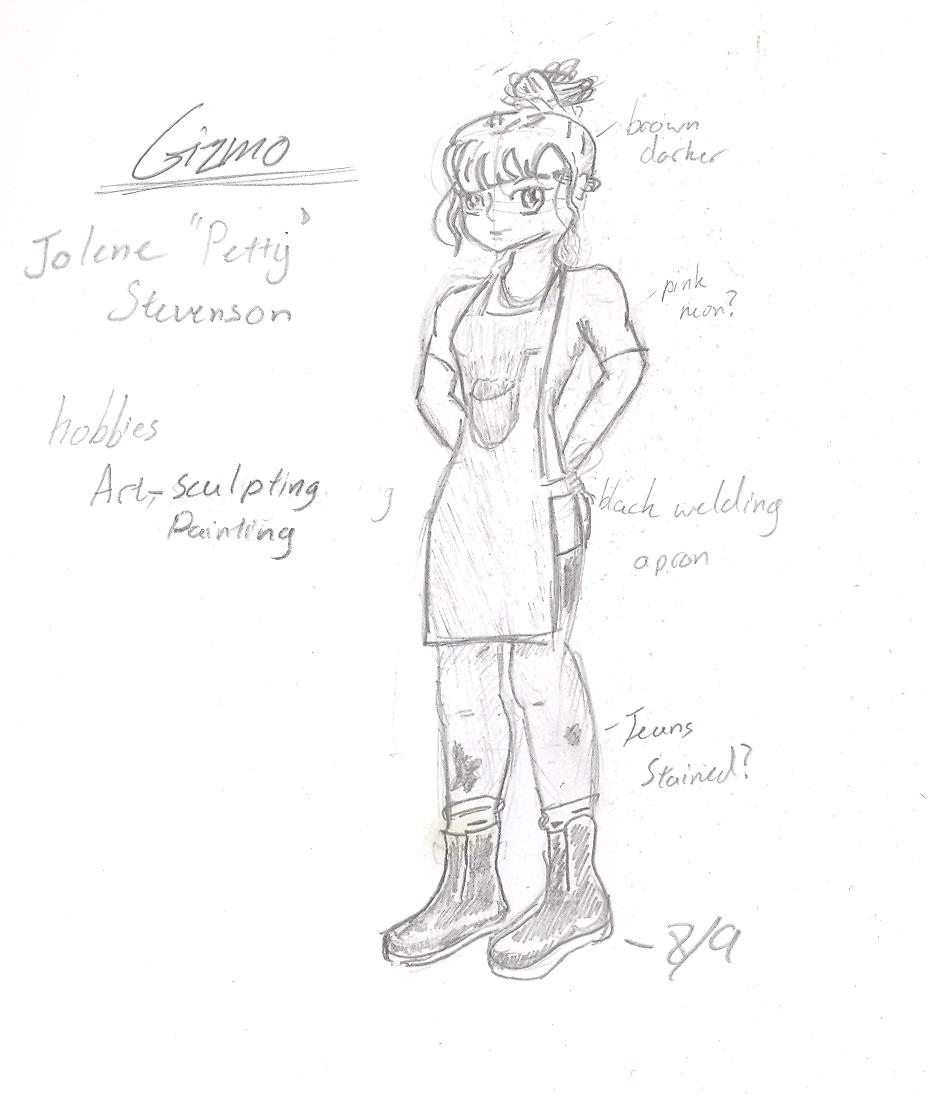 Gizmo
Jolene "Petty"
Stevenson
hobbies
Art, sculpting
Painting
brown
darker
pink
neon?
black welding
apron
- Jeans
Stained?
- 8/9